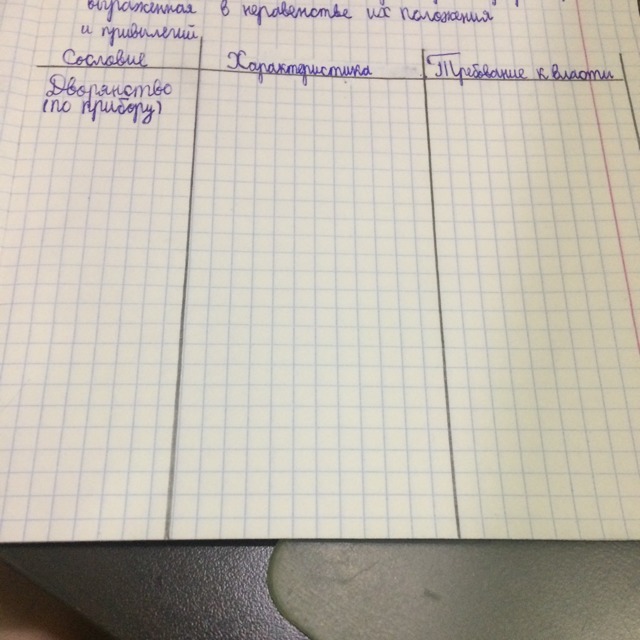 выраженная в неравенстве их положения
и привилегий
Сословие Характеристика Требование к власти
Дворянство
(по прибору)